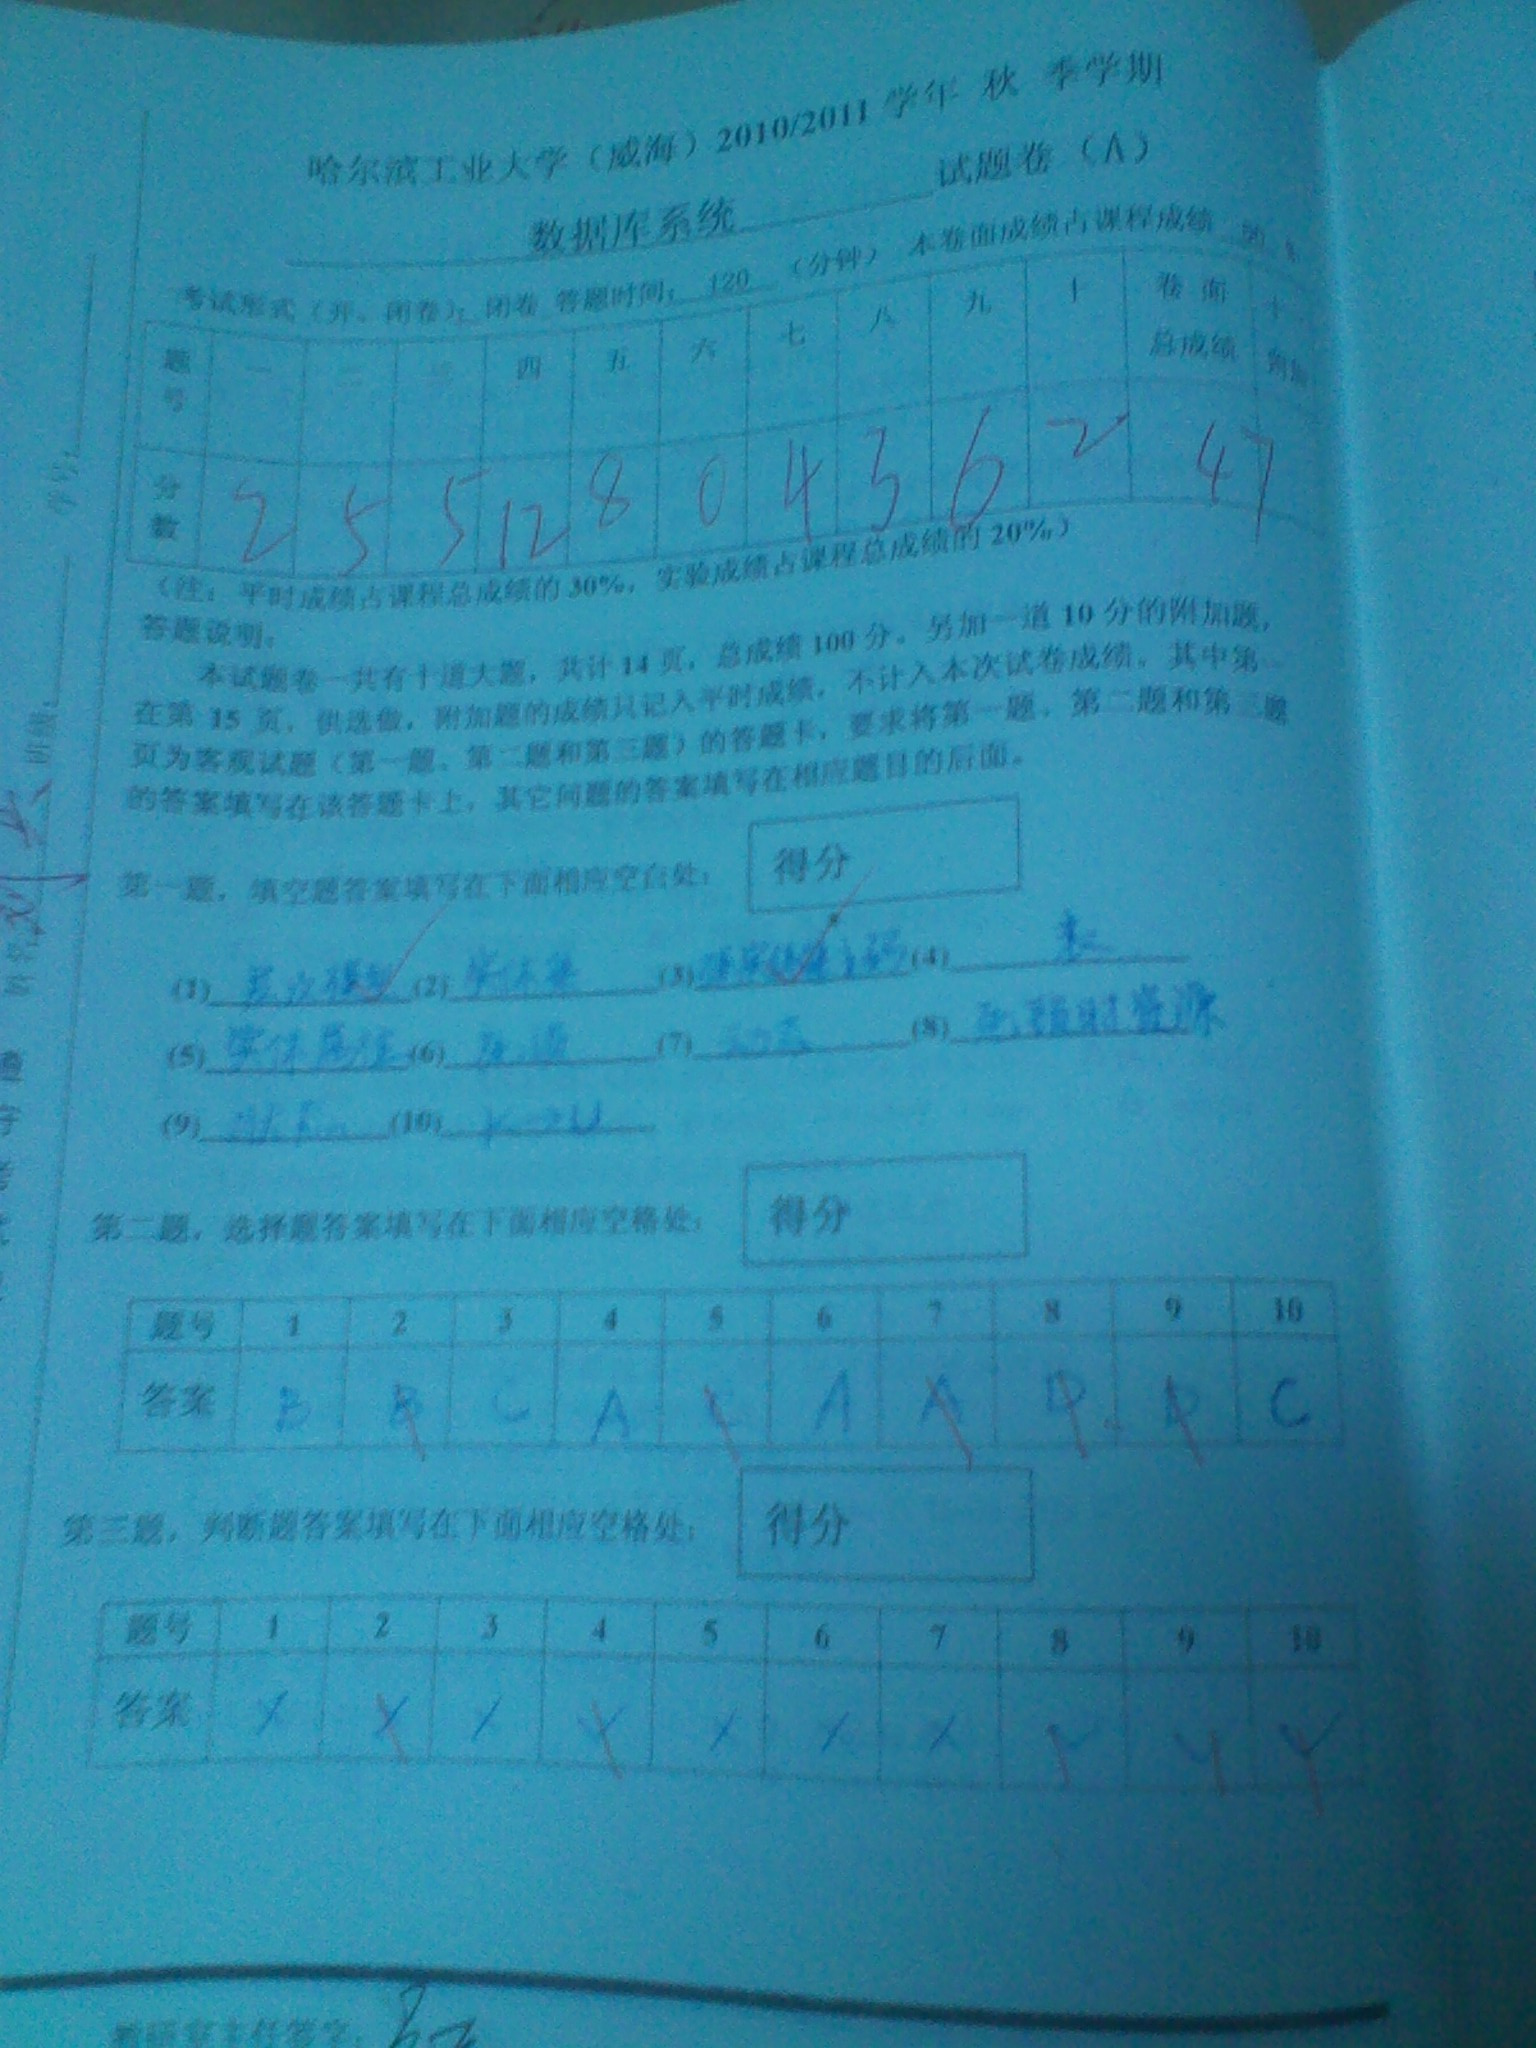 哈尔滨工业大学（威海）2010/2011 学年 秋 季学期
数据库系统 试题卷（A）
考试形式（开、闭卷）：闭卷 答题时间：120 （分钟） 本卷面成绩占课程成绩
题号 一 二 三 四 五 六 七 八 九 十 卷面总成绩
分数 2 5 5 12 8 0 4 3 6 2 47
（注：平时成绩占课程总成绩的 30%，实验成绩占课程总成绩的 20%）
答题说明。
本试题卷一共有十道大题，共计 14 页，总成绩 100 分。另加一道 10 分的附加题，
在第 15 页，供选做，附加题的成绩只记入平时成绩，不计入本次试卷成绩。其中第
页为客观试题（第一题、第二题和第三题）的答题卡，要求将第一题、第二题和第三题
的答案填写在该答题卡上，其它问题的答案填写在相应题目的后面。
学号：
班级：
第一题，填空题答案填写在下面相应空白处： 得分
(1) 层次模型 (2) 实体集 (3) (4) 表
(5) 实体属性 (6) (7) 动态 (8)
(9) (10)
第二题，选择题答案填写在下面相应空格处： 得分
题号 1 2 3 4 5 6 7 8 9 10
答案 B B C A C A A D D C
第三题，判断题答案填写在下面相应空格处： 得分
题号 1 2 3 4 5 6 7 8 9 10
答案 X X X X X X X
教研室主任签字：